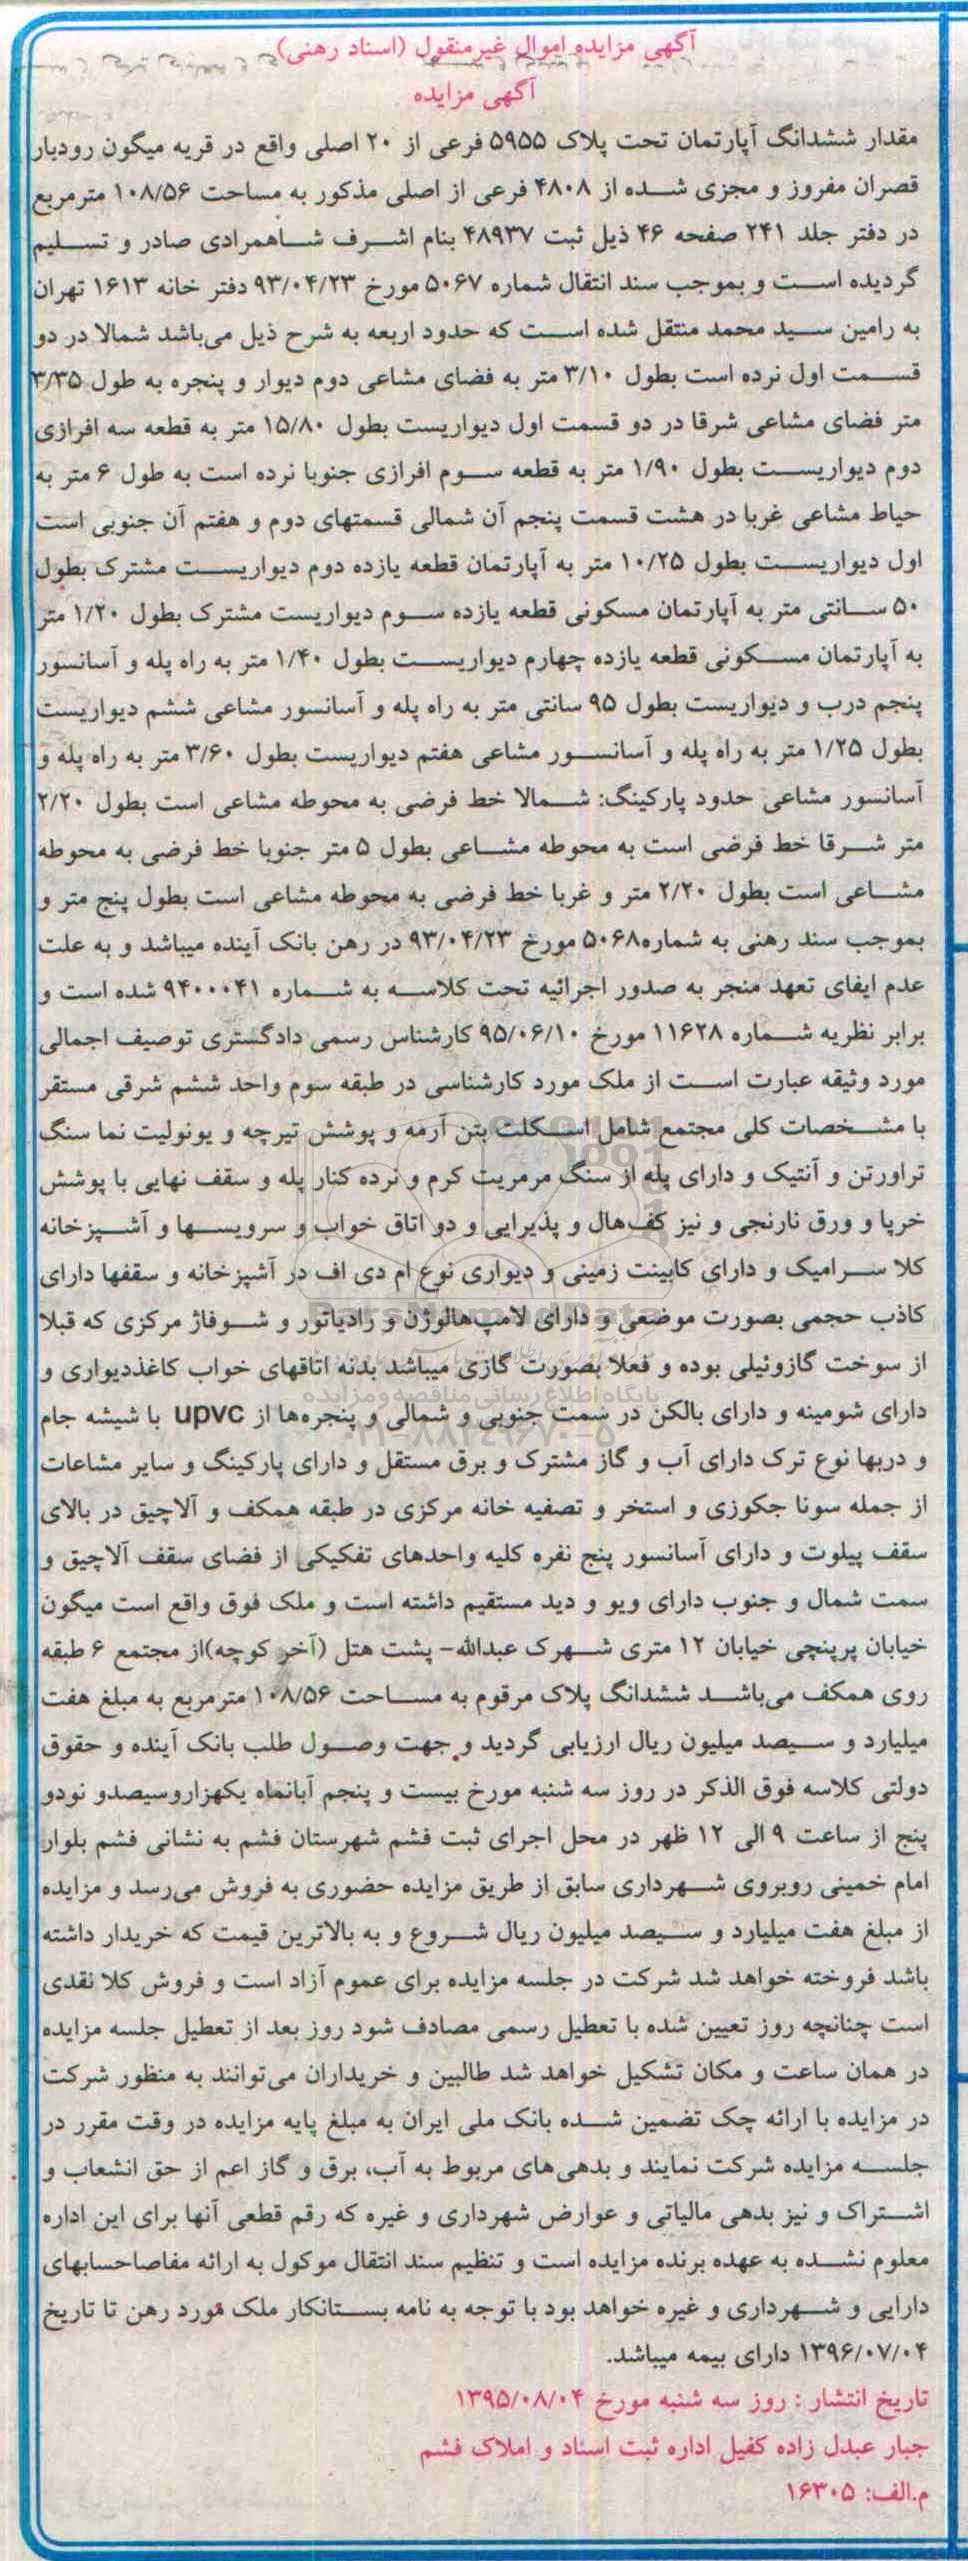 آگهی مزایده اموال غیرمنقول (اسناد رهنی)
آگهی مزایده
مقدار ششدانگ آپارتمان تحت پلاک ۵۹۵۵ فرعی از ۲۰ اصلی واقع در قریه میگون رودبار
قصران مفروز و مجزی شده از ۴۸۰۸ فرعی از اصلی مذکور به مساحت ۱۰۸/۵۶ مترمربع
در دفتر جلد ۲۴۱ صفحه ۴۶ ذیل ثبت ۴۸۹۳۷ بنام اشرف شاهمرادی صادر و تسلیم
گردیده است و بموجب سند انتقال شماره ۵۰۶۷ مورخ ۹۳/۰۴/۲۳ دفتر خانه ۱۶۱۳ تهران
به رامین سید محمد منتقل شده است که حدود اربعه به شرح ذیل می‌باشد شمالا در دو
قسمت اول نرده است بطول ۳/۱۰ متر به فضای مشاعی دوم دیوار و پنجره به طول ۳/۳۵
متر فضای مشاعی شرقا در دو قسمت اول دیواریست بطول ۱۵/۸۰ متر به قطعه سه افرازی
دوم دیواریست بطول ۱/۹۰ متر به قطعه سوم افرازی جنوبا نرده است به طول ۶ متر به
حیاط مشاعی غربا در هشت قسمت پنجم آن شمالی قسمتهای دوم و هفتم آن جنوبی است
اول دیواریست بطول ۱۰/۲۵ متر به آپارتمان قطعه یازده دوم دیواریست مشترک بطول
۵۰ سانتی متر به آپارتمان مسکونی قطعه یازده سوم دیواریست مشترک بطول ۱/۲۰ متر
به آپارتمان مسکونی قطعه یازده چهارم دیواریست بطول ۱/۴۰ متر به راه پله و آسانسور
پنجم درب و دیواریست بطول ۹۵ سانتی متر به راه پله و آسانسور مشاعی ششم دیواریست
بطول ۱/۲۵ متر به راه پله و آسانسور مشاعی هفتم دیواریست بطول ۳/۶۰ متر به راه پله و
آسانسور مشاعی حدود پارکینگ: شمالا خط فرضی به محوطه مشاعی است بطول ۲/۲۰
متر شرقا خط فرضی است به محوطه مشاعی بطول ۵ متر جنوبا خط فرضی به محوطه
مشاعی است بطول ۲/۲۰ متر و غربا خط فرضی به محوطه مشاعی است بطول پنج متر و
بموجب سند رهنی به شماره۵۰۶۸ مورخ ۹۳/۰۴/۲۳ در رهن بانک آینده میباشد و به علت
عدم ایفای تعهد منجر به صدور اجرائیه تحت کلاسه به شماره ۹۴۰۰۰۴۱ شده است و
برابر نظریه شماره ۱۱۶۲۸ مورخ ۹۵/۰۶/۱۰ کارشناس رسمی دادگستری توصیف اجمالی
مورد وثیقه عبارت است از ملک مورد کارشناسی در طبقه سوم واحد ششم شرقی مستقر
با مشخصات کلی مجتمع شامل اسکلت بتن آرمه و پوشش تیرچه و یونولیت نما سنگ
تراورتن و آنتیک و دارای پله از سنگ مرمریت کرم و نرده کنار پله و سقف نهایی با پوشش
خرپا و ورق نارنجی و نیز کف‌هال و پذیرایی و دو اتاق خواب و سرویسها و آشپزخانه
کلا سرامیک و دارای کابینت زمینی و دیواری نوع ام دی اف در آشپزخانه و سقفها دارای
کاذب حجمی بصورت موضعی و دارای لامپ‌هالوژن و رادیاتور و شوفاژ مرکزی که قبلا
از سوخت گازوئیلی بوده و فعلا بصورت گازی میباشد بدنه اتاقهای خواب کاغذدیواری و
دارای شومینه و دارای بالکن در سمت جنوبی و شمالی و پنجره‌ها از upvc با شیشه جام
و دربها نوع ترک دارای آب و گاز مشترک و برق مستقل و دارای پارکینگ و سایر مشاعات
از جمله سونا جکوزی و استخر و تصفیه خانه مرکزی در طبقه همکف و آلاچیق در بالای
سقف پیلوت و دارای آسانسور پنج نفره کلیه واحدهای تفکیکی از فضای سقف آلاچیق و
سمت شمال و جنوب دارای ویو و دید مستقیم داشته است و ملک فوق واقع است میگون
خیابان پرپنچی خیابان ۱۲ متری شهرک عبدالله- پشت هتل (آخر کوچه)از مجتمع ۶ طبقه
روی همکف می‌باشد ششدانگ پلاک مرقوم به مساحت ۱۰۸/۵۶ مترمربع به مبلغ هفت
میلیارد و سیصد میلیون ریال ارزیابی گردید و جهت وصول طلب بانک آینده و حقوق
دولتی کلاسه فوق الذکر در روز سه شنبه مورخ بیست و پنجم آبانماه یکهزاروسیصدو نودو
پنج از ساعت ۹ الی ۱۲ ظهر در محل اجرای ثبت فشم شهرستان فشم به نشانی فشم بلوار
امام خمینی روبروی شهرداری سابق از طریق مزایده حضوری به فروش می‌رسد و مزایده
از مبلغ هفت میلیارد و سیصد میلیون ریال شروع و به بالاترین قیمت که خریدار داشته
باشد فروخته خواهد شد شرکت در جلسه مزایده برای عموم آزاد است و فروش کلا نقدی
است چنانچه روز تعیین شده با تعطیل رسمی مصادف شود روز بعد از تعطیل جلسه مزایده
در همان ساعت و مکان تشکیل خواهد شد طالبین و خریداران می‌توانند به منظور شرکت
در مزایده با ارائه چک تضمین شده بانک ملی ایران به مبلغ پایه مزایده در وقت مقرر در
جلسه مزایده شرکت نمایند و بدهی‌های مربوط به آب، برق و گاز اعم از حق انشعاب و
اشتراک و نیز بدهی مالیاتی و عوارض شهرداری و غیره که رقم قطعی آنها برای این اداره
معلوم نشده به عهده برنده مزایده است و تنظیم سند انتقال موکول به ارائه مفاصاحسابهای
دارایی و شهرداری و غیره خواهد بود با توجه به نامه بستانکار ملک مورد رهن تا تاریخ
۱۳۹۶/۰۷/۰۴ دارای بیمه میباشد.
تاریخ انتشار : روز سه شنبه مورخ ۱۳۹۵/۰۸/۰۴
جبار عبدل زاده کفیل اداره ثبت اسناد و املاک فشم
م.الف: ۱۶۳۰۵